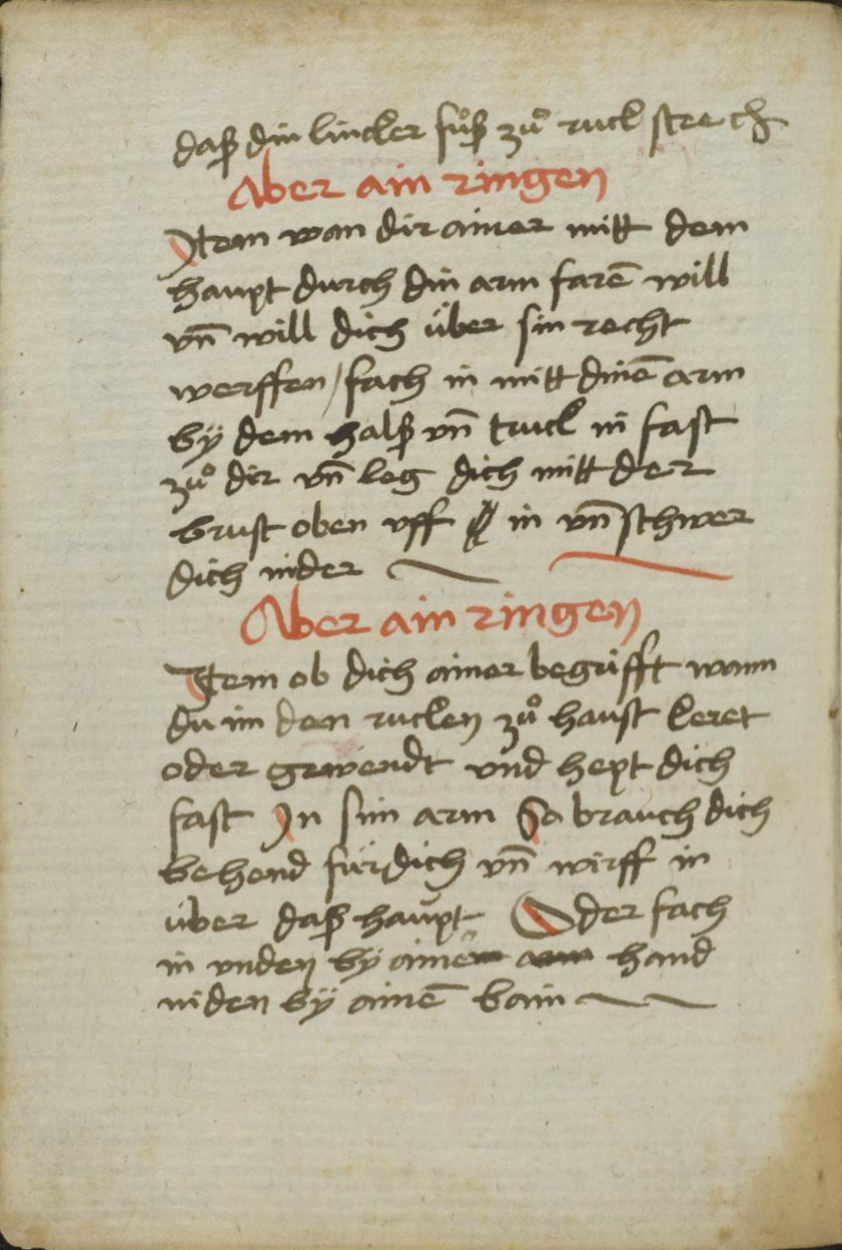 daß din lincker fůß zů ruck strech
Aber ain ringen
Item wan dir ainer mitt dem
haupt durch din arm farē will
vn̄ will dich über sin recht
werffen / fach in mitt dinē arm
bÿ dem halß vn̄ truck in fast
zů dir vn̄ leg dich mitt der
brust oben vff in vn̄ schwer
dich nider
Aber ain ringen
Item ob dich ainer begrifft wann
du im den rucken zů haust keret
oder gewendt vnd hept dich
fast In sim arm So brauch dich
behend für dich vn̄ wirff in
über daß haupt Oder fach
in vnden bÿ aine hand
niden bÿ ainē bain